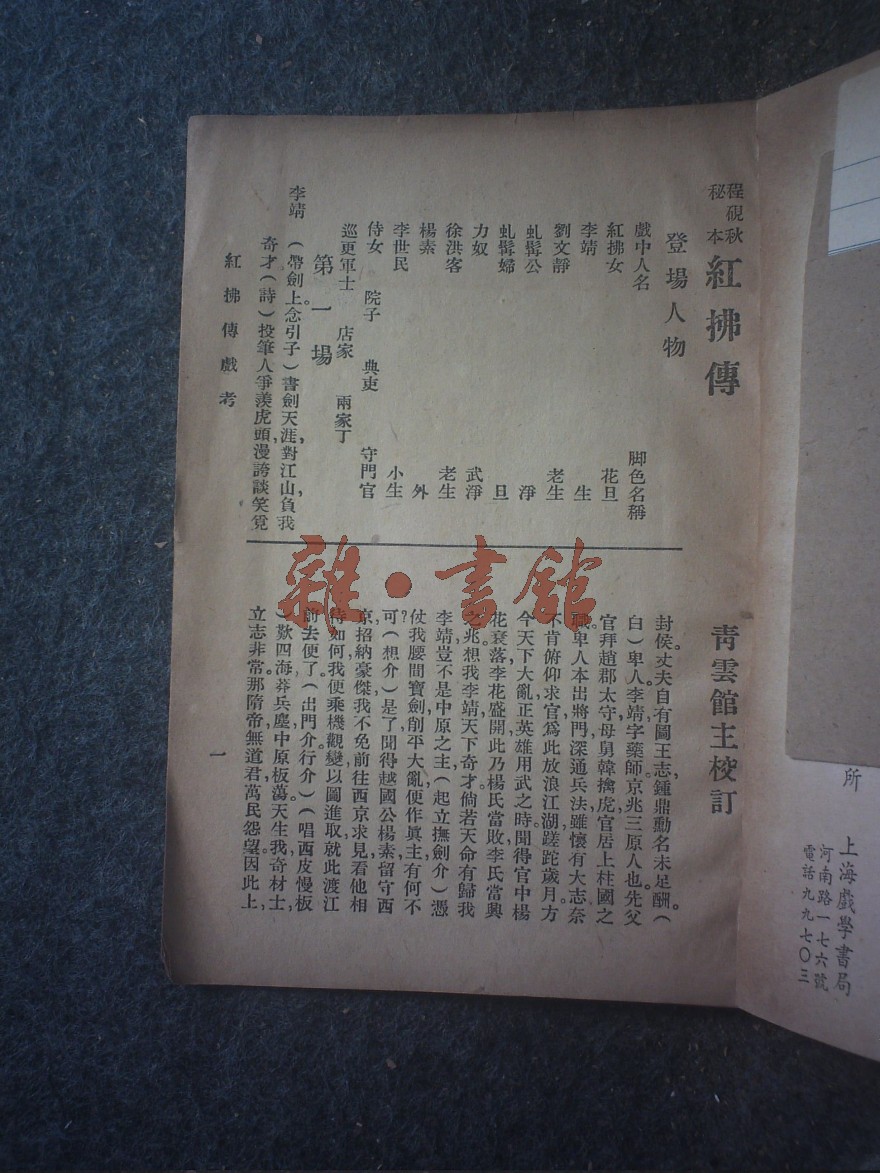 上海戲學書局
河南路一七六號
電話九九七〇三
所
程硯秋
秘本
紅拂傳
青雲館主校訂
登場人物
戲中人名 脚色名稱
紅拂女 花旦
李靖 生
劉文靜 老生
虬髯公 淨
虬髯婦 旦
力奴 武淨
徐洪客 老生
楊素 外
李世民 小生
侍女 院子 典吏 守門官
巡更軍士 店家 兩家丁
第一場
李靖 (帶劍上念引子)書劍天涯,對江山,負我
奇才(詩)投筆人爭羨虎頭,漫誇談笑覓
封侯。丈夫自有圖王志,鍾鼎勳名未足酬。(
白)卑人李靖字藥師京兆三原人也。先父
官拜趙郡太守母舅韓擒虎官居上柱國之
職。卑人本出將門,深通兵法,雖懷有大志奈
不肯俯仰求官,爲此放浪江湖,蹉跎歲月。方
今天下大亂,正英雄用武之時,聞得官中楊
花衰落,李花盛開,此乃楊氏當敗,李氏當興
之兆。想我李靖天下奇才,倘若天命有歸,我
李靖豈不是中原之主(起立撫劍介)憑
仗我腰間寶劍,削平大亂,便作眞主有何不
可?(想介)是了,聞得越國公楊素留守西
京,招納豪傑,我不免前往西京求見,看他相
待如何,我便乘機觀變以圖進取,就此渡江
前去便了(出門介行介)(唱西皮慢板
)歎四海莽兵塵,中原板蕩。天生我,奇材士,
立志非常。那隋帝無道君,萬民怨望。因此上,
紅拂傳戲考
一
雜·書館